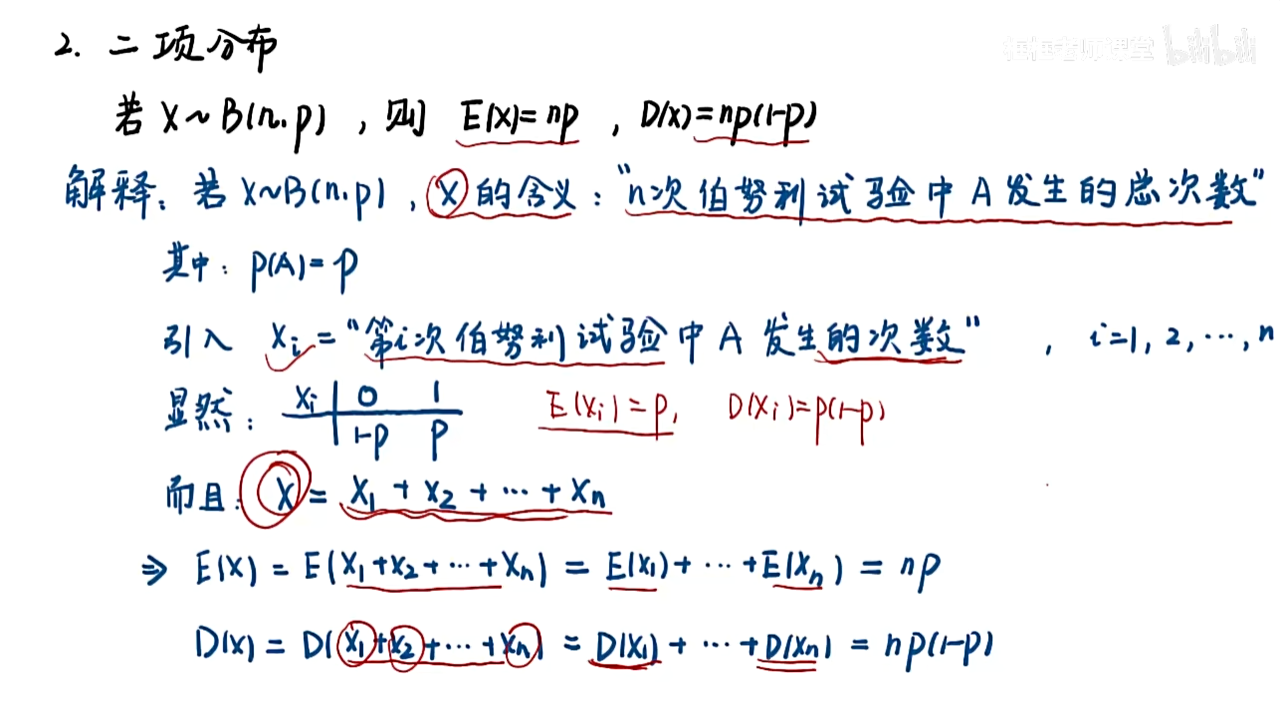 2. 二项分布
若 X~B(n.p) , 则 E(X)=np , D(X)=np(1-p)
解释: 若 X~B(n.p) , X 的含义: "n次伯努利试验中 A 发生的总次数"
其中: P(A)=p
引入 Xi="第i次伯努利试验中 A 发生的次数" , i=1, 2, ⋯, n
显然: Xi 0 1 E(Xi)=p, D(Xi)=p(1-p)
1-p p
而且: X = X1 + X2 + ⋯ + Xn
⇒ E(X) = E(X1+X2+⋯+Xn) = E(X1)+⋯+E(Xn) = np
D(X) = D(X1+X2+⋯+Xn) = D(X1)+⋯+D(Xn) = np(1-p)
bilibili